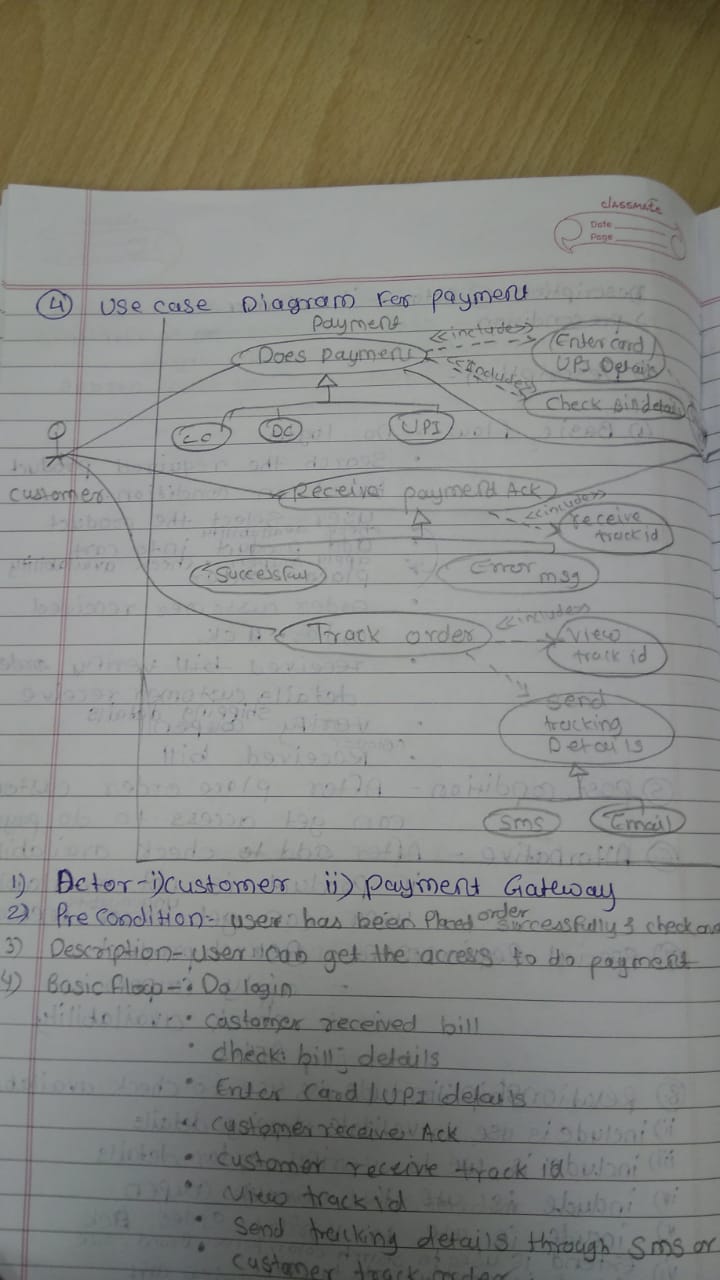 classmate
Date
Page
④ Use case Diagram For payment
Payment
Does payment
<<includes>>
Enter card/
UPI Details
<<Includes>>
Check Bin details
CC
DC
UPI
customer
Receive payment Ack
<<includes>>
receive
track id
Successful
Error msg
Track order
<<includes>>
view
track id
send
tracking
Details
sms
Email
1) Actor - i) customer ii) Payment Gateway
2) Pre Condition - user has been Placed order successfully &
3) Description - user can get the access to do payment
4) Basic - • Do login
• customer received bill
• check bill details
• Enter Card / UPI details
• customer receive Ack
• customer receive track id
• View track id
• send tracking details through sms or
• customer track order